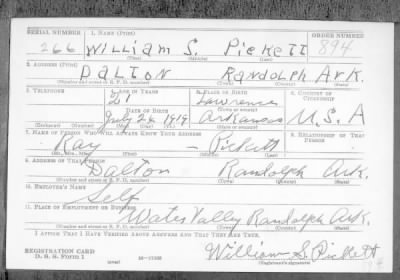 SERIAL NUMBER 1. NAME (Print) ORDER NUMBER
266 William S. Pickett 894
(First) (Middle) (Last)
2. ADDRESS (Print)
DALTON RANDOLPH ARK.
(Number and street or R. F. D. number) (Town) (County) (State)
3. TELEPHONE 4. AGE IN YEARS 5. PLACE OF BIRTH 6. COUNTRY OF CITIZENSHIP
21 Lawrence
DATE OF BIRTH
July 26 1919 Arkansas U.S.A
(Exchange) (Number) (Mo.) (Day) (Yr.) (State or country)
7. NAME OF PERSON WHO WILL ALWAYS KNOW YOUR ADDRESS 8. RELATIONSHIP OF THAT PERSON
Ray — Pickett
(Mr., Mrs., Miss) (First) (Middle) (Last)
9. ADDRESS OF THAT PERSON
Dalton Randolph Ark.
(Number and street or R. F. D. number) (Town) (County) (State)
10. EMPLOYER'S NAME
Self
11. PLACE OF EMPLOYMENT OR BUSINESS
Water Valley Randolph Ark.
(Number and street or R. F. D. number) (Town) (County) (State)
I AFFIRM THAT I HAVE VERIFIED ABOVE ANSWERS AND THAT THEY ARE TRUE.
REGISTRATION CARD
D. S. S. Form 1 16—17105 William S. Pickett
(Registrant's signature)